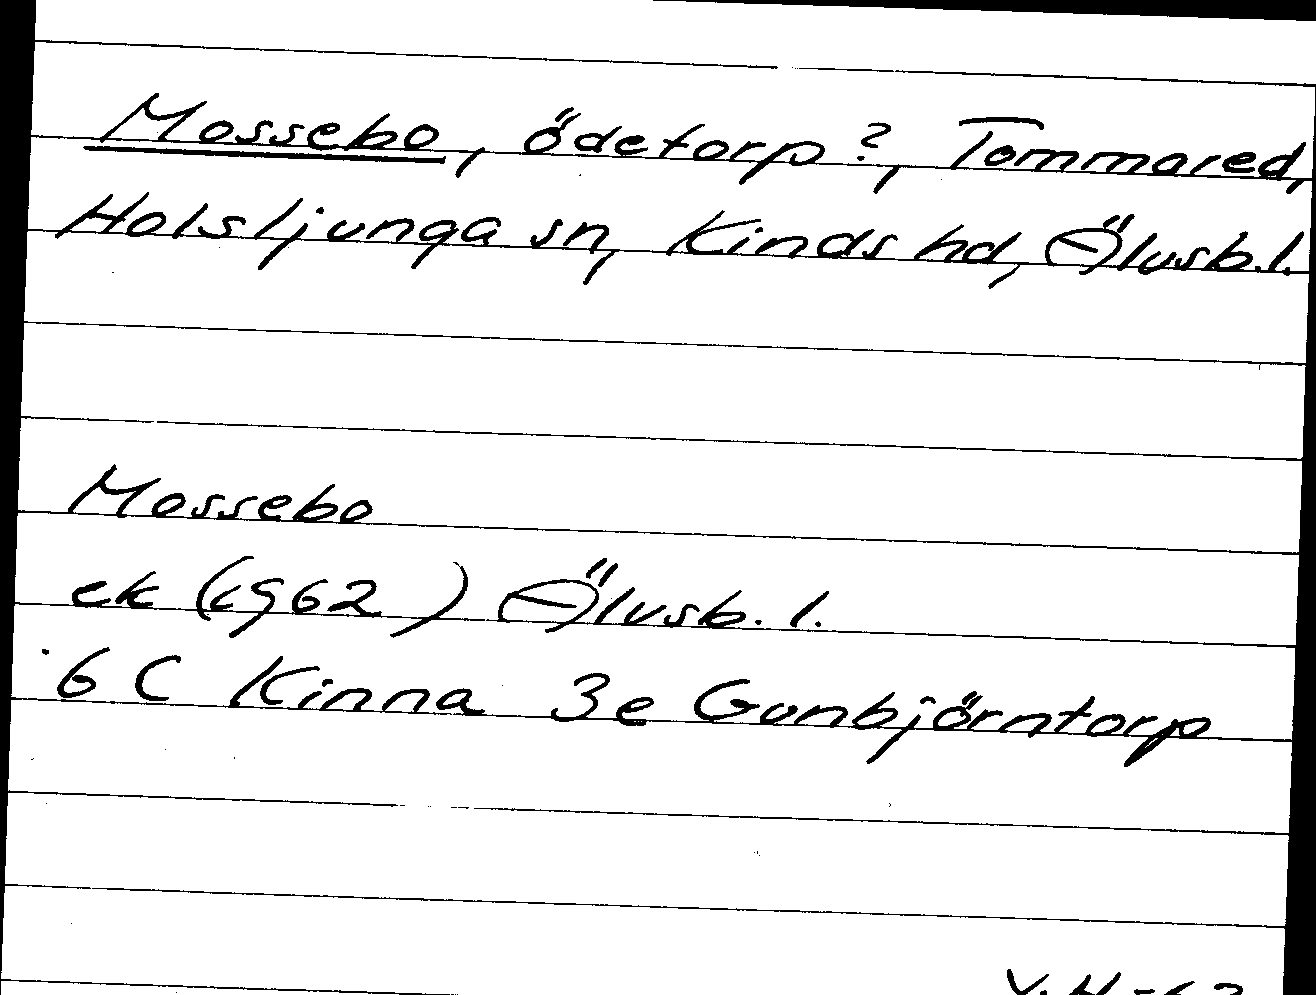 Mossebo, ödetorp?, Tommared,
Holsljunga sn, Kinds hd, Älvsb.l.
Mossebo
ek (1962) Älvsb. l.
6 C Kinna 3e Gunbjörntorp